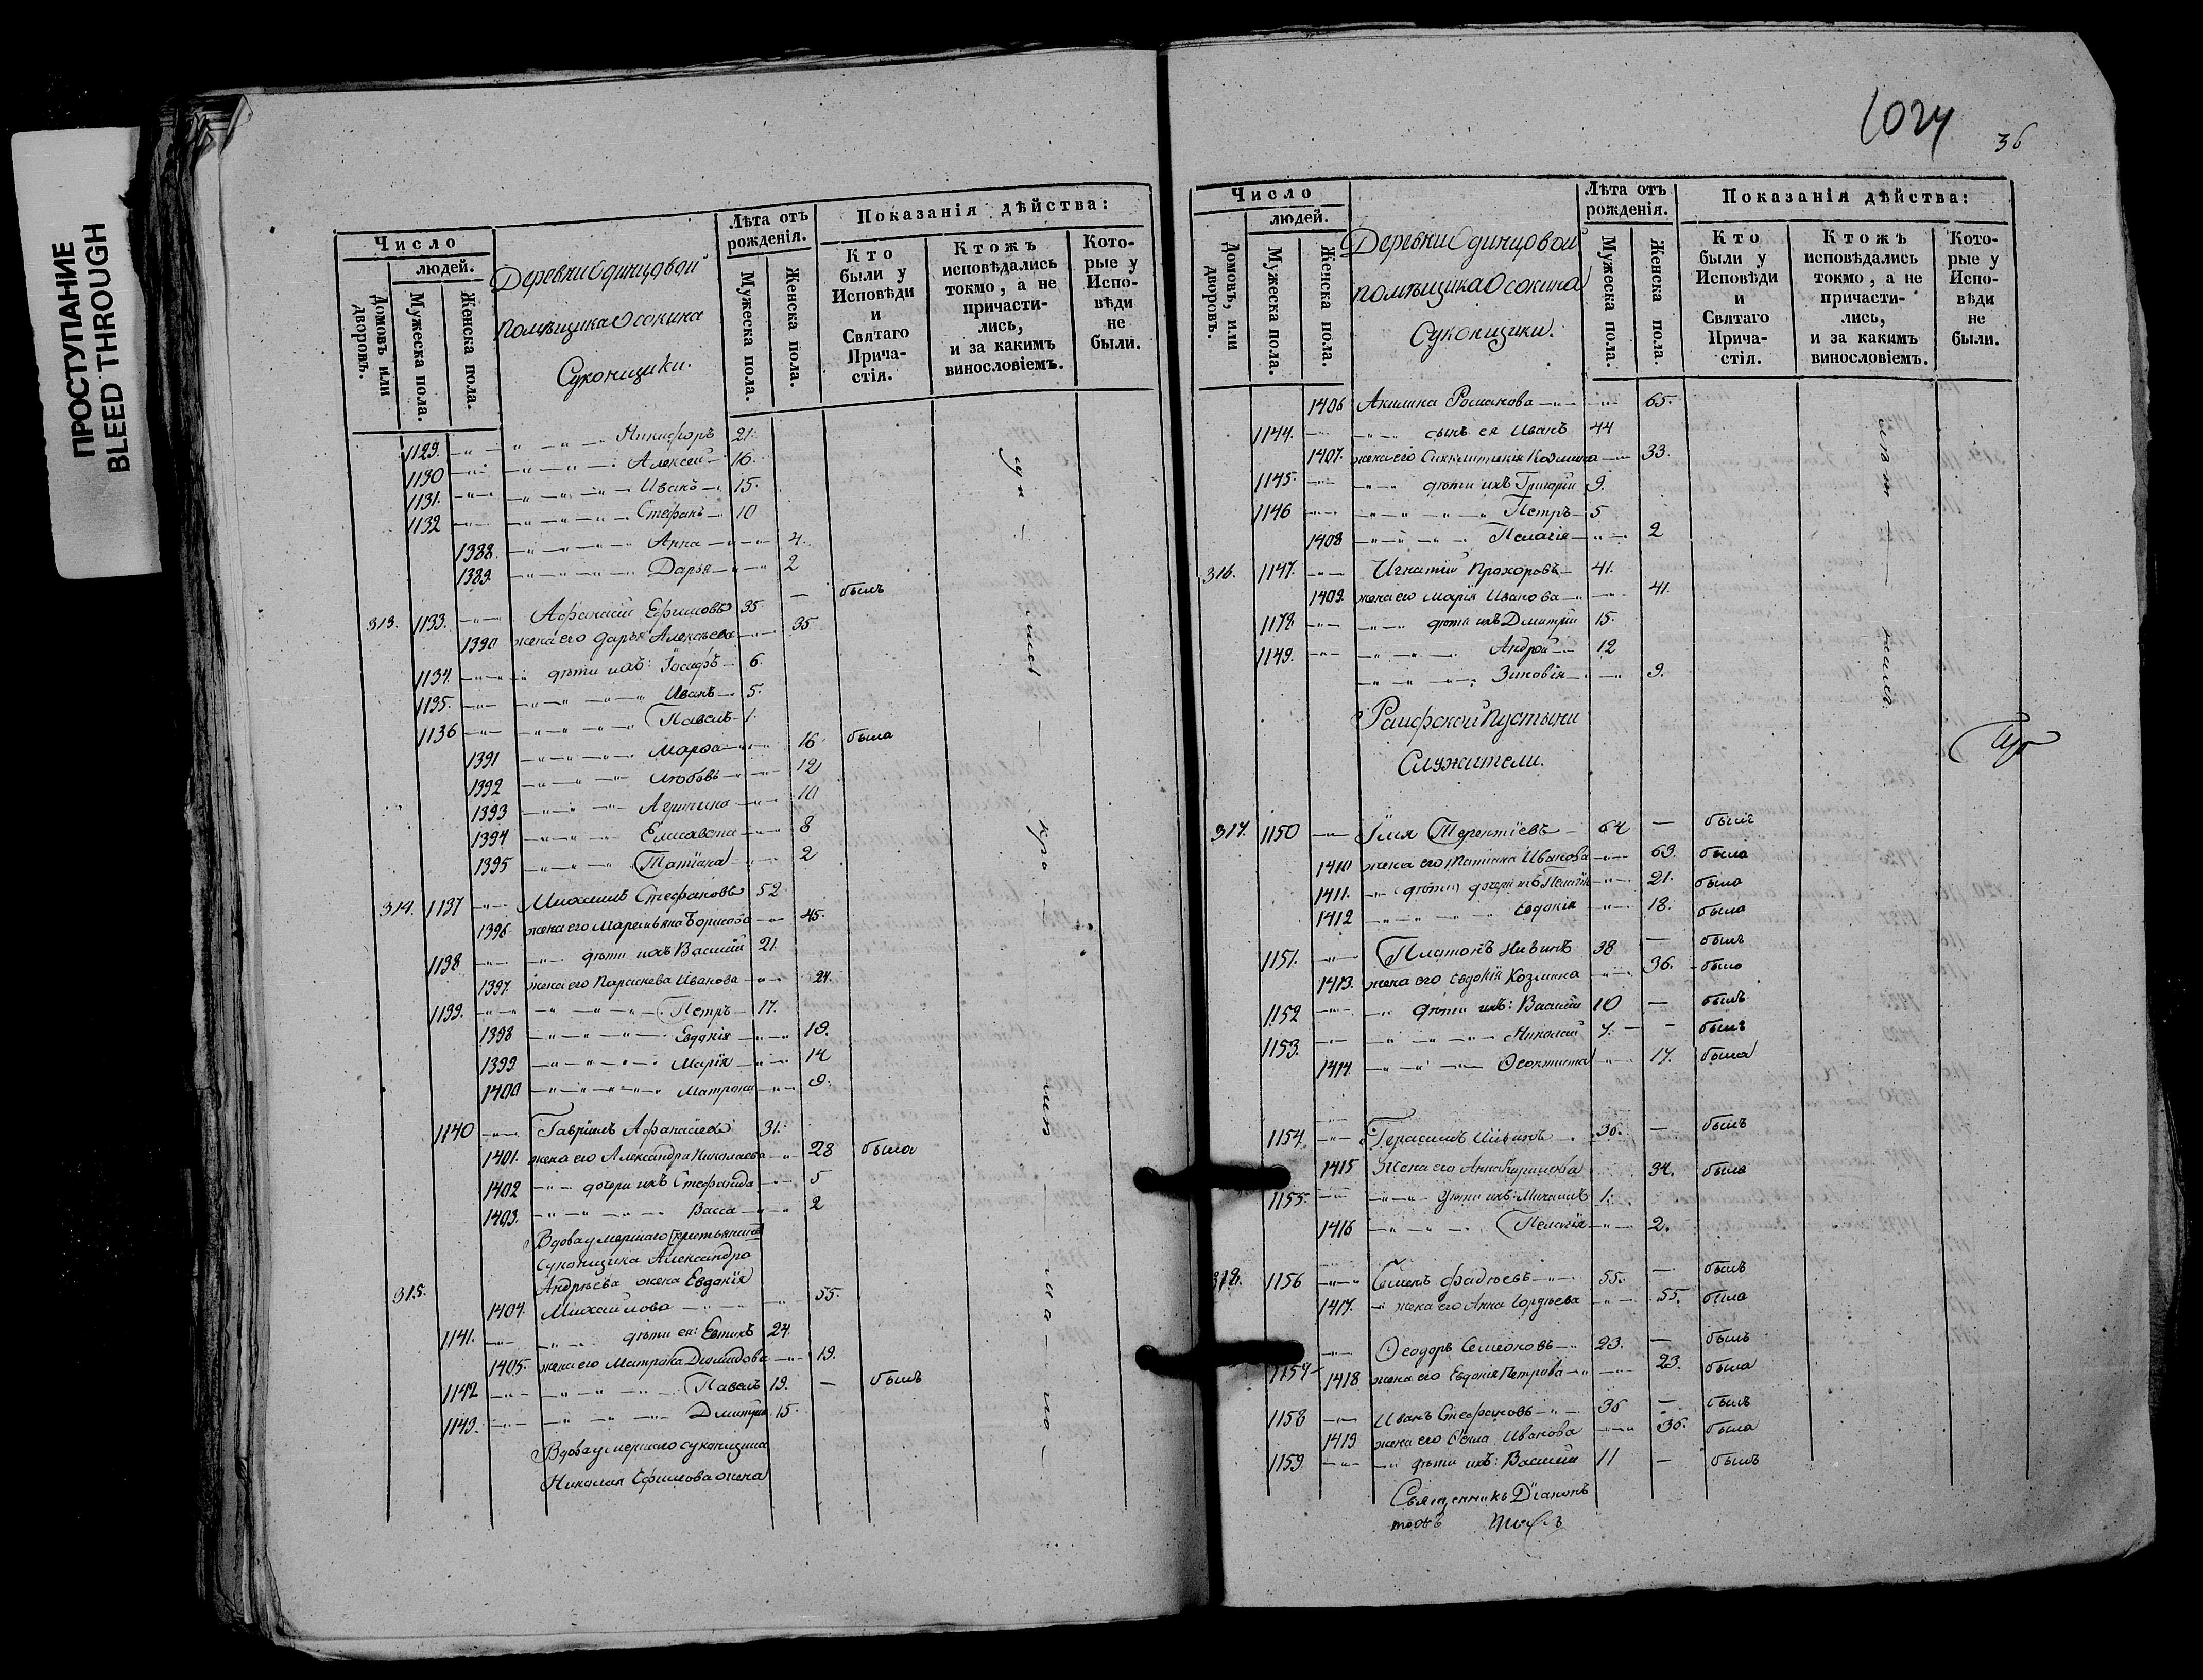 ПРОСТУПАНИЕ
BLEED THROUGH
Число
людей.
Домовъ или дворовъ.
Мужеска пола.
Женска пола.
Деревни Одинцовой
помѣщика Осокина
Суконщики.
Лѣта отъ рожденія.
Мужеска пола.
Женска пола.
Показанія дѣйства:
Кто были у Исповѣди и Святаго Прича-стія.
Ктожъ исповѣдались токмо, а не причасти-лись, и за какимъ винословіемъ.
Кото-рые у Испо-вѣди не были.
1129. Никифоръ 21.
1130 Алексей 16.
1131. Иванъ 15.
1132 Стефанъ 10
1388. Анна 4.
1389. Дарья 2
313. 1133. Афанасій Ефимовъ 35 — былъ
1390 жена его Дарья Алексѣева 35
1134. дѣти ихъ: Іосифъ 6.
1135. Иванъ 5.
1136 Павелъ 1.
1391 Марѳа 16 была
1392 Любовь 12
1393 10
1394 Елисавета 8
1395 Татіана 2
314. 1137 Михаилъ Стефановъ 52
1396 жена его Маремьяна Борисова 45.
1138 дѣти ихъ Василій 21.
1397. жена его Параскева Иванова 24.
1139. Петръ 17.
1398 Евдокія 19.
1399. Марія 14
1400 Матрона 9.
1140 Гавріилъ Афанасіевъ 31.
1401. жена его Александра Николаева 28 была
1402 дочери ихъ Стефанида 5
1403. Васса 2
Вдова умершаго
суконщика Александра
315. Андрѣева жена Евдокія
1404. Михайлова 55.
1141. дѣти ея: 24.
1405. жена его Матрона Демидова 19.
1142 Павелъ 19. — былъ
1143. Дмитрій 15.
Вдова умершаго суконщика
Николая Ефимова жена
1024
36
Число
людей.
Домовъ, или дворовъ.
Мужеска пола.
Женска пола.
Деревни Одинцовой
помѣщика Осокина
Суконщики.
Лѣта отъ рожденія.
Мужеска пола.
Женска пола.
Показанія дѣйства:
Кто были у Исповѣди и Святаго Прича-стія.
Ктожъ исповѣдались токмо, а не причасти-лись, и за какимъ винословіемъ.
Кото-рые у Испо-вѣди не были.
1406 Акилина Романова 65.
1144. сынъ ея Иванъ 44
1407. жена его Синклитикія Козмина 33.
1145. дѣти ихъ Григорій 9.
1146 Петръ 5
1408 Пелагія 2
316. 1147. Игнатій Прохоровъ 41.
1409. жена его Марія Иванова 41.
дѣти ихъ Дмитрій 15.
1149. Андрей 12
Зиновія 9.
Раифской Пустыни
Служители.
317. 1150 Илія Терентіевъ 64 — былъ
1410 жена его Татіана Иванова 63. была
1411. дочери ихъ Пелагія 21. была
1412 Евдокія 18. была
1151. Платонъ 38 — былъ
1413. жена его Евдокія Козмина 36. была
1152 дѣти ихъ: Василій 10 — былъ
1153. Николай 7. — былъ
1414. Ѳеоктиста 17. была
1154 Герасимъ Ильинъ 36. — былъ
1415 Жена его Анна 34. была
1155. дѣти ихъ: Михаилъ 1.
1416 Пелагія 2.
318. 1156 Семенъ Фадѣевъ 55. — былъ
1417. жена его Анна Гордѣева 55. была
1157 Ѳеодоръ Семеновъ 23. — былъ
1418 жена его Евдокія Петрова 23. была
1158 Иванъ Стефановъ 36 — былъ
1419 жена его Иванова 36. была
1159 дѣти ихъ: Василій 11 — былъ
Священникъ Діаконъ